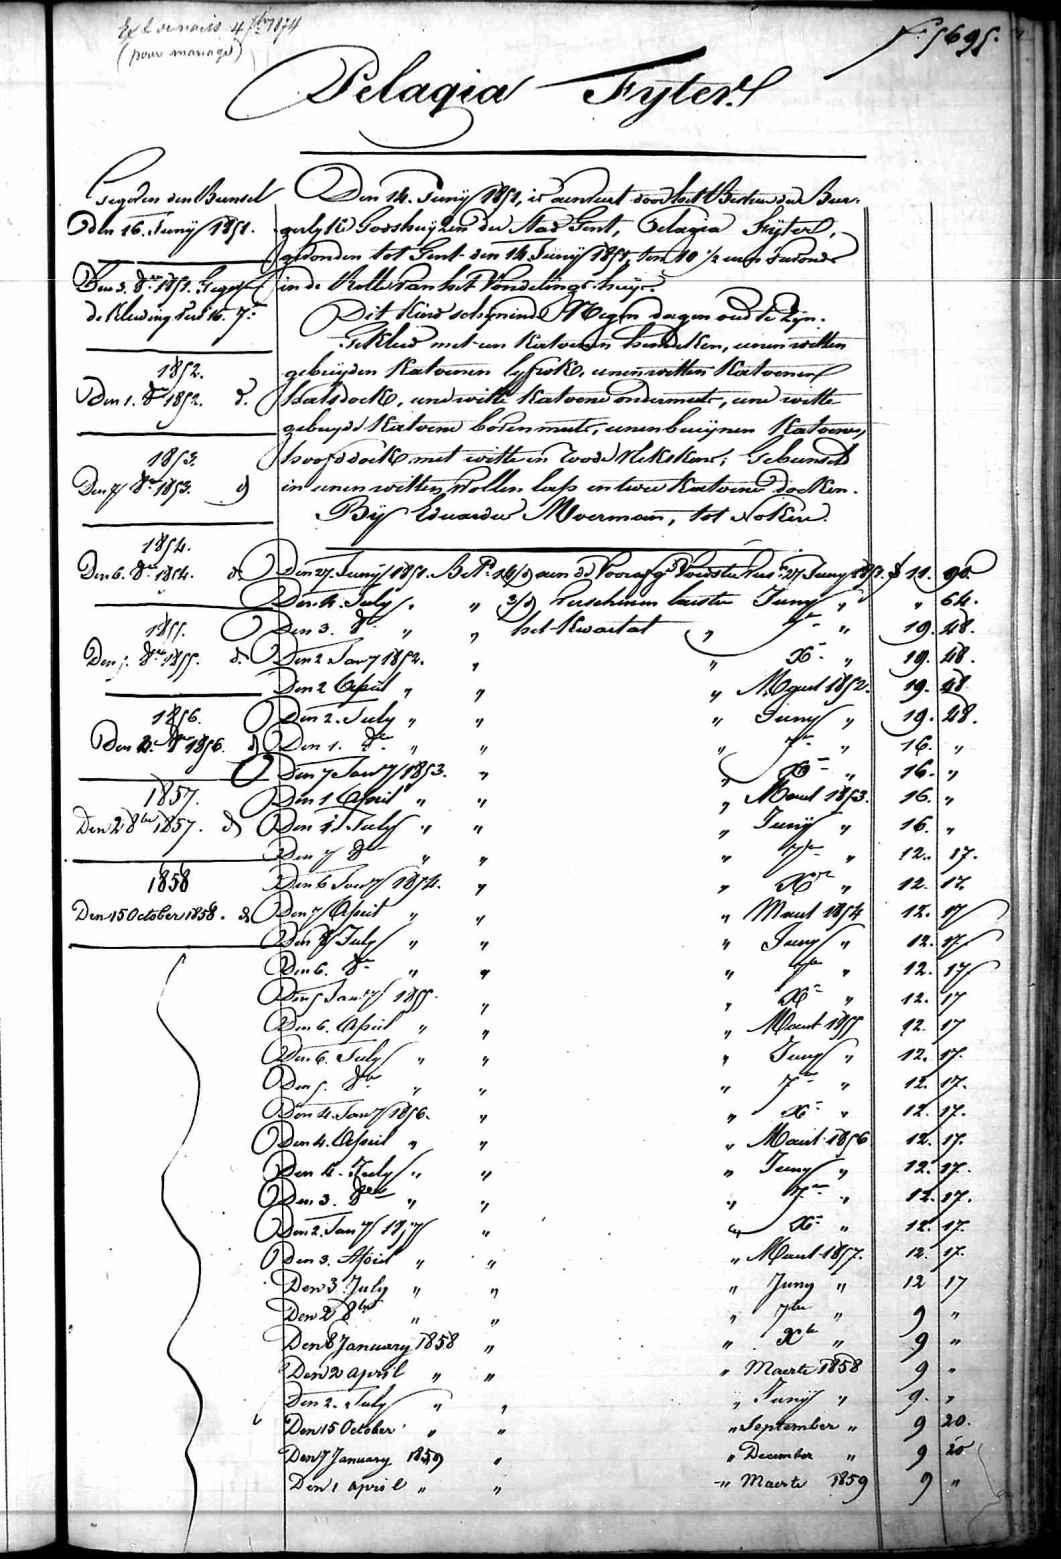 4 7bre 1874
(pour mariage)
F° 5695.
Pelagia Fyters
Gegeven den Bunsel
den 16. Juny 1851.
Den 3. 8bre 1851. Gegeven
de Kleeding
1852.
Den 1. 8bre 1852. d°
1853.
Den 7 8bre 1853. d°
1854.
Den 6. 8bre 1854. d°
1855.
Den 5. 8bre 1855. d°
1856.
Den 2. 8bre 1856. d°
1857.
Den 2 8bre 1857. d°
1858
Den 15 October 1858. d°
Den 14. Juny 1851, is aenveert door het Bestier der Bur-
gerlyke Godshuyzen der Stad Gent, Pelagia Fyters,
gevonden tot Gent den 14 Juny 1851, ten 10 1/2 uren 's avonds
in de Rolle van het Vondelingshuys.
Dit Kind schynende Negen dagen oud te zyn.
Gekleed met een Katoenen hemdeken, eenen witten
gebreyden Katoenen lyfrok, eenen witten Katoenen
halsdoek, eene witte Katoene ondermuts, eene witte
gebreyde Katoene bovenmuts, eenen bruynen Katoenen
hoofddoek met witte en roode; Gebunseld
in eenen witten Wollen lap en twee Katoene doeken.
By Eduardus Moerman, tot Nokere.
Den 27. Juny 1851. Bet. aen de Voorsz. Voedster 27 Juny 1851. f 11. 90.
Den 4. July " " verschenen laeste Juny " " 64.
Den 3. 8bre " " het Kwartael " 7bre " 19. 48.
Den 2 Jany 1852. " " Xbre " 19. 48.
Den 2 April " " " Maert 1852. 19. 48
Den 2. July " " " Juny " 19. 48.
Den 1. 8bre " " " 7bre " 16. "
Den 7 Jany 1853. " " Xbre " 16. "
Den 1 April " " " Maert 1853. 16. "
Den 1 July " " " Juny " 16. "
Den 7 8bre " " " 7bre " 12. 17.
Den 6 Jany 1854. " " Xbre " 12. 17.
Den 7 April " " " Maert 1854 12. 17
Den 7 July " " " Juny " 12. 17
Den 6. 8bre " " " 7bre " 12. 17
Den 5 Jany 1855. " " Xbre " 12. 17
Den 6. April " " " Maert 1855 12. 17
Den 6. July " " " Juny " 12. 17.
Den 5. 8bre " " " 7bre " 12. 17.
Den 4. Jany 1856. " " Xbre " 12. 17.
Den 4. April " " " Maert 1856 12. 17.
Den 4. July " " " Juny " 12. 17.
Den 3. 8bre " " " 7bre " 12. 17.
Den 2. Jany 1857 " " Xbre " 12. 17.
Den 3. April " " " Maert 1857. 12. 17.
Den 3 July " " " Juny " 12 17
Den 2 8bre " " " 7bre " 9 "
Den 8 January 1858 " " Xbre " 9 "
Den 2 april " " " Maerte 1858 9 "
Den 2. July " " " Juny " 9. "
Den 15 October " " " September " 9 20.
Den 7 January 1859 " " December " 9 20
Den 1 april " " " Maerte 1859 9 "